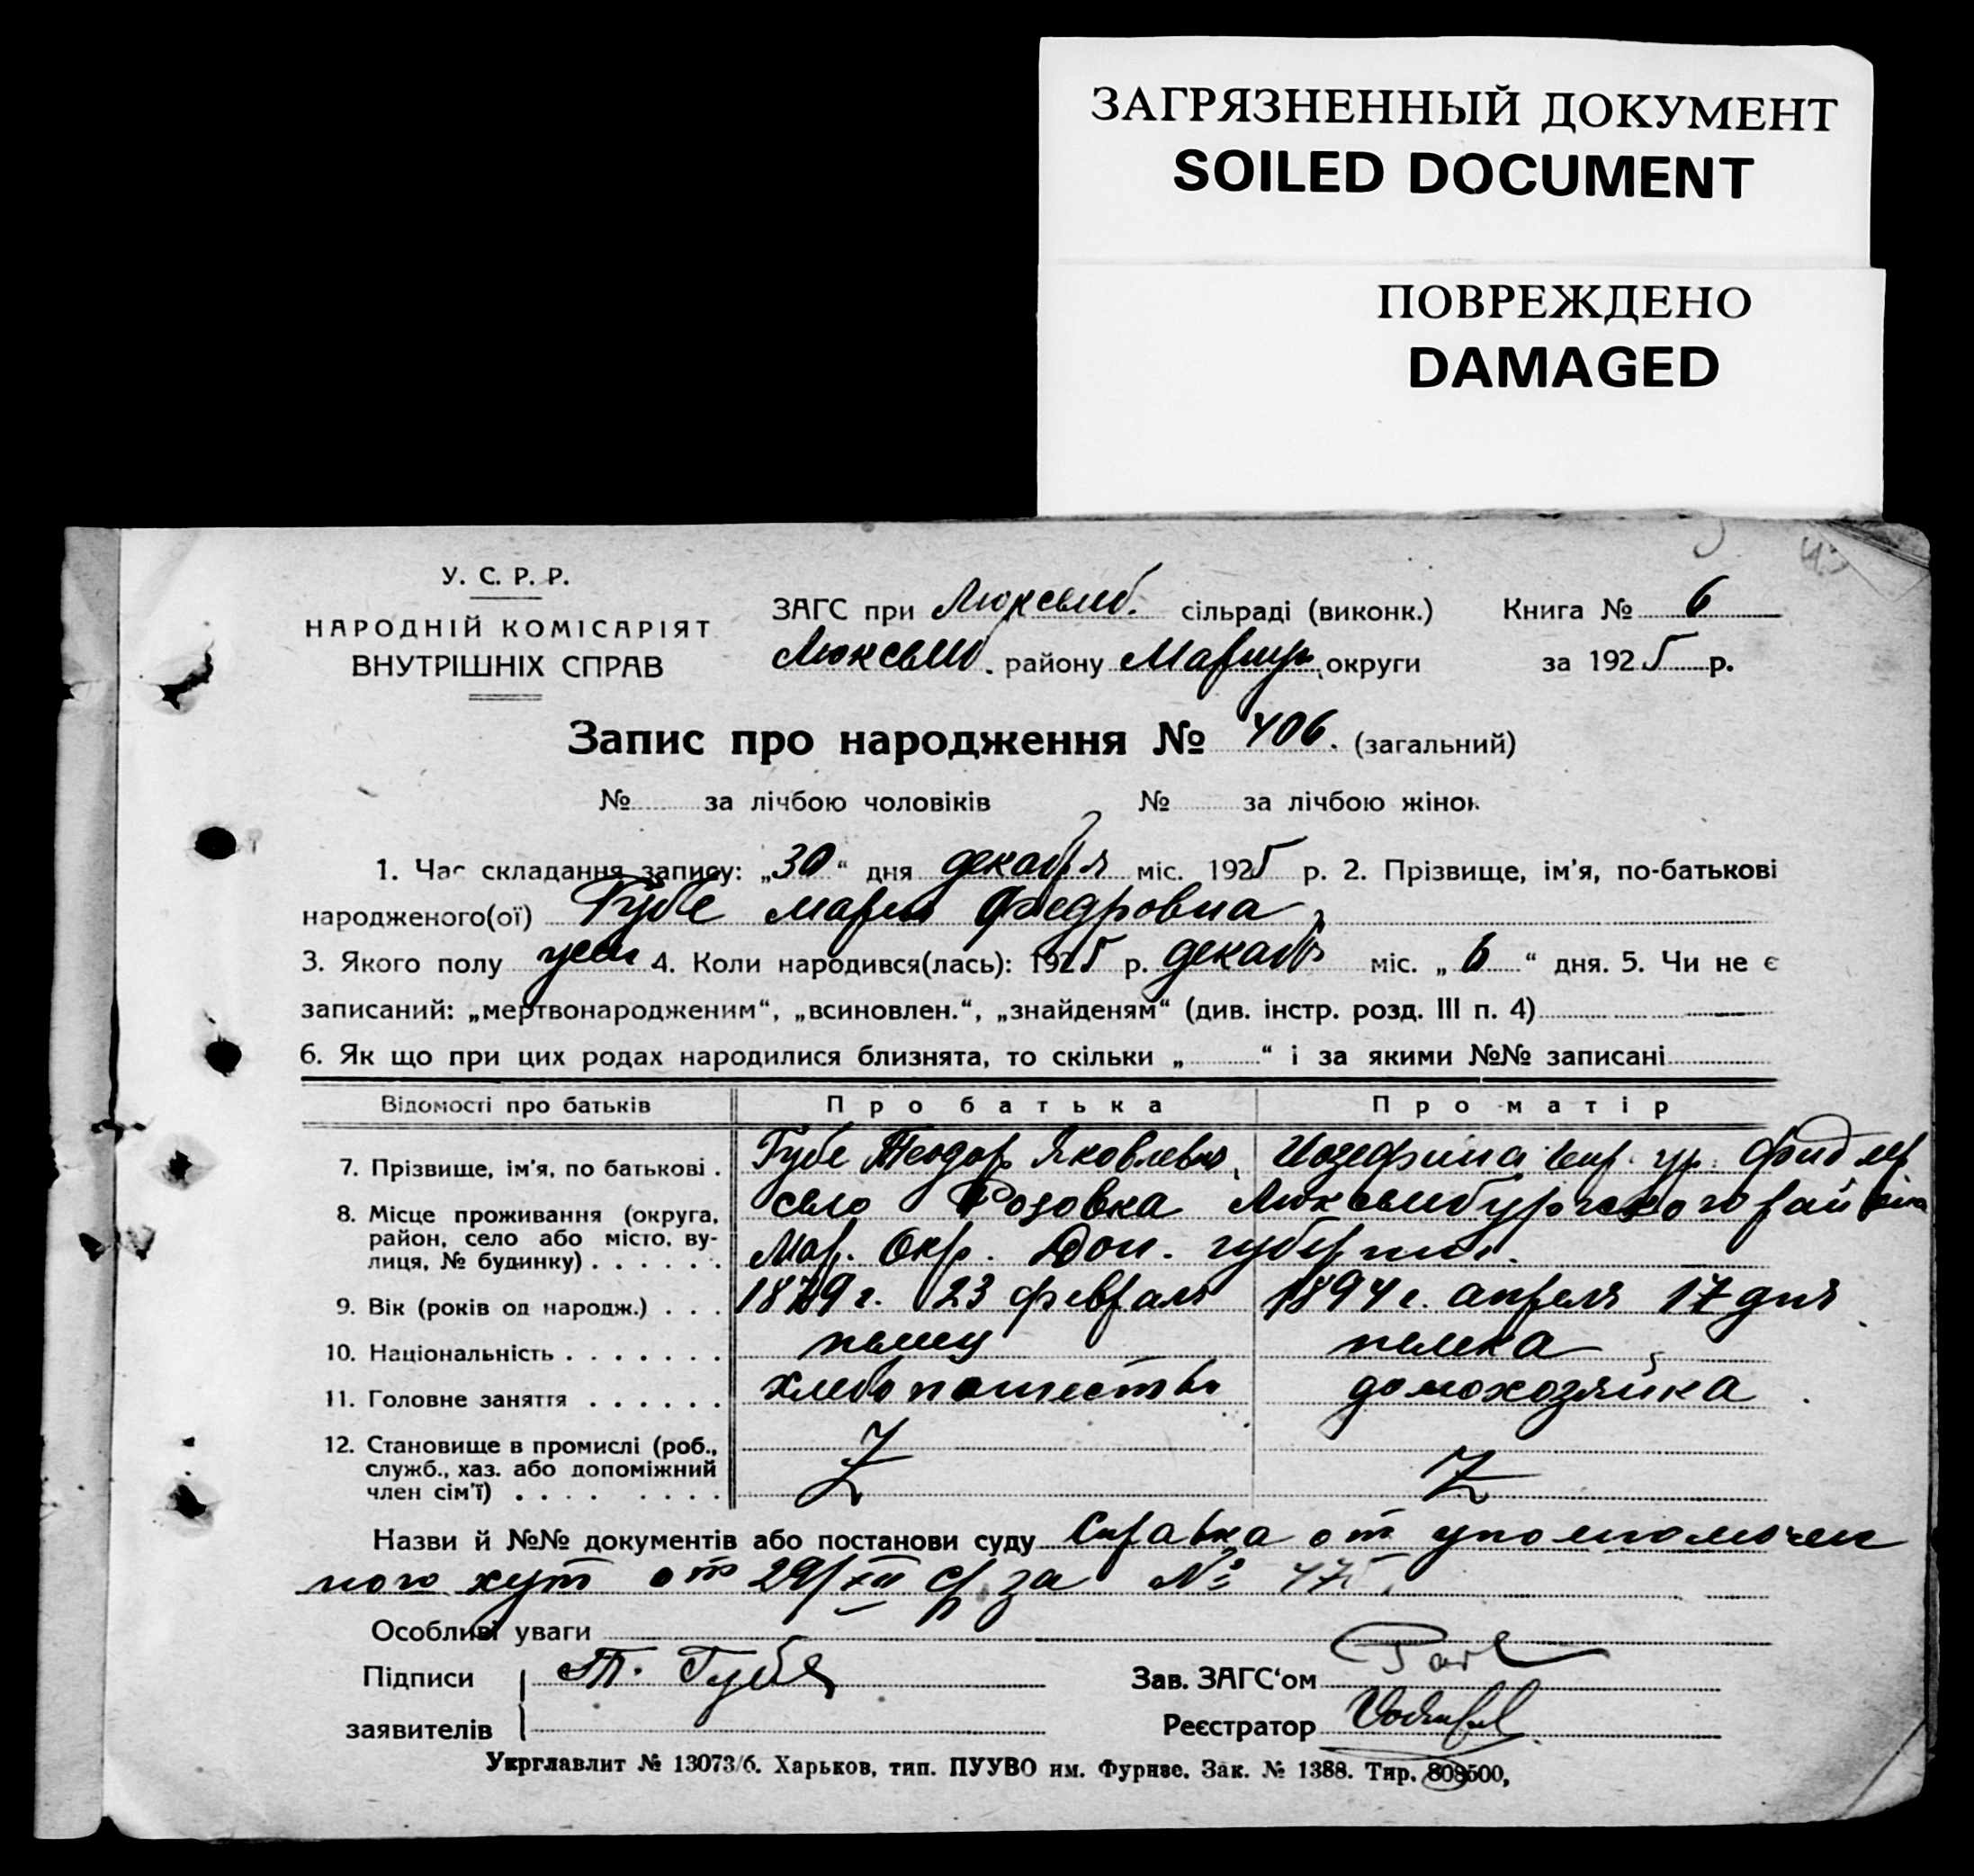 ЗАГРЯЗНЕННЫЙ ДОКУМЕНТ
SOILED DOCUMENT
ПОВРЕЖДЕНО
DAMAGED
У. С. Р. Р.
НАРОДНІЙ КОМІСАРІЯТ
ВНУТРІШНІХ СПРАВ
ЗАГС при Люксемб. сільраді (виконк.) Книга № 6
Люксемб. району Мариуп. округи за 1925 р.
Запис про народження № 406. (загальний)
№ за лічбою чоловіків № за лічбою жінок
1. Час складання запису: „30“ дня декабря міс. 1925 р. 2. Прізвище, ім'я, по-батькові
народженого(ої) Губе Мария Федровна
3. Якого полу жен 4. Коли народився(лась): 1925 р. декабр міс. „6“ дня. 5. Чи не є
записаний: „мертвонародженим“, „всиновлен.“, „знайденям“ (див. інстр. розд. III п. 4)
6. Як що при цих родах народилися близнята, то скільки „ “ і за якими №№ записані
Відомості про батьків Про батька Про матір
7. Прізвище, ім'я, по батькові . Губе Теодор Яковлевич, Иозефина ур. Фидлер
8. Місце проживання (округа, село Розовка Люксембургского района
район, село або місто, ву-
лиця, № будинку) . . . . . . Мар. Окр. Дон. губернии.
9. Вік (років од народж.) . . . 1879 г. 23 февраля 1894 г. апреля 17 дня
10. Національність . . . . . . . немец немка
11. Головне заняття . . . . . . хлебопашество домохозяйка
12. Становище в промислі (роб.,
служб., хаз. або допоміжний
член сім'ї) . . . . . . . . Z Z
Назви й №№ документів або постанови суду Справка от уполномочен
ного хут от 29/XII с/г за № 475.
Особливі уваги
Підписи Т. Губе Зав. ЗАГС'ом
заявителів Реєстратор
Укрглавлит № 13073/6. Харьков, тип. ПУУВО им. Фрунзе. Зак. № 1388. Тир. 500,